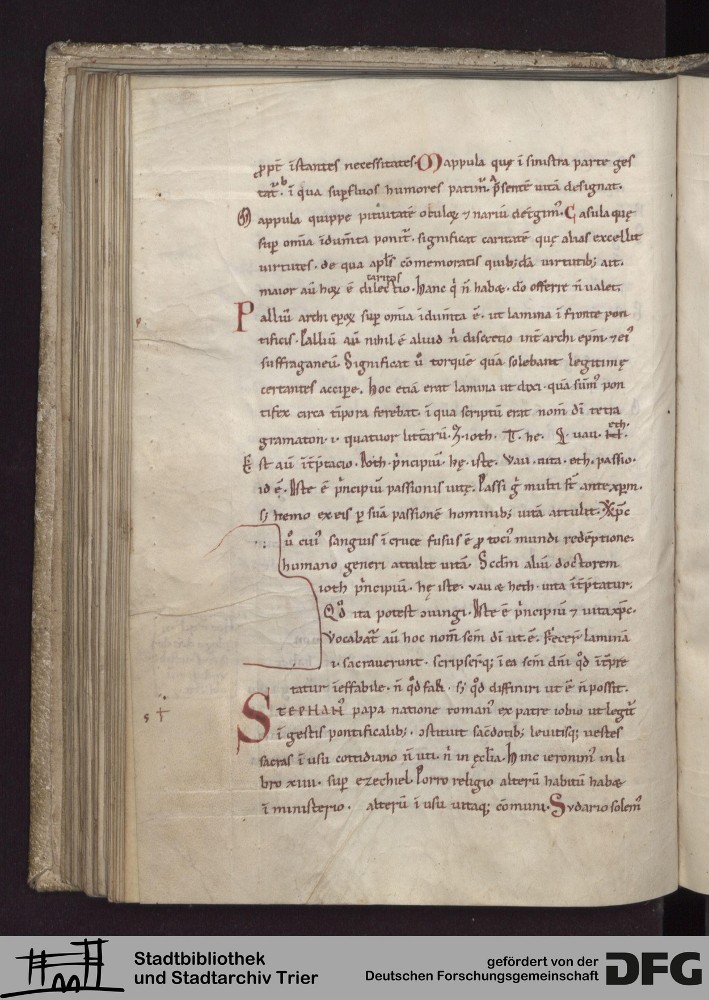 ꝓpt̄ īstantes necessitates. Mappula quę ī sinistra parte ges
tat̄ᷣ. ī qua suꝑfluos humores patim̄. p̄sentē uitā designat.
Mappula quippe pituitatē oculoꝝ ⁊ nariū det̄gim̄. Casula quę
suꝑ omīa īdum̄ta ponit̄. significat caritatē quę alias excellit
uirtutes. de qua apl̄s cōmemoratis quib;dā uirtutib; ait.
maior aū hoꝝ ē dilectio. hanc q̄ n̄ habꝫ. do offerre n̄ ualet.
caritas
Palliū archi eꝑoꝝ suꝑ omīa idum̄ta ē. ut lamina ī fronte pon
tificis. Palliū aū nihil ē aliud n̄ discretio int̄ archi ep̄m ⁊ ei᷒
suffraganeū. Significat ū torquē quā solebant legitimę
certantes acciꝑe. hoc etiā erat lamina ut dixi. quā sūm᷒ pon
tifex circa tīpora ferebat. ī qua scriptū erat nom̄ dī tetra
gramaton. i. quatuor litt̄arū. ioth. he. uau. eth.
Est aū īt̄p̄tacio. Ioth. p̄ncipiū. hę. iste. Vau. uita. eth. passio.
id ē. Iste ē p̄ncipiū passionis uitę. Passi ḡ multi st̄ ante xp̄m.
s; nemo ex eis ꝑ suā passionē hominib; uitā attulit. Xp̄c
ū cui᷒ sanguis ī cruce fusus ē ꝓ toci᷒ mundi redēptione.
humano generi attulit uitā. Scdm̄ aliū doctorem
ioth p̄ncipiū. hę iste. uau ⁊ heth. uita īt̄p̄tatur.
Qd̄ ita potest ɔiungi. Iste ē p̄ncipiū ⁊ uita xp̄c.
Vocabat̄ aū hoc nom̄ scm̄ dī ut. ē. fecer̄ laminā
i. sacrauerunt. scripserq; ī ea scm̄ dnī qd̄ īt̄pre
tatur ineffabile. n̄ qd̄ fari. s; qd̄ diffiniri ut ē n̄ possit.
STEPHAN᷒ papa natione roman᷒ ex patre iobio ut legit̄
ī gestis pontificalib;. ɔstituit sac̄dotib; leuitisq; uestes
sacras ī usu cottidiano n̄ uti. n̄ in ęcl̄ia. Hinc ieronim᷒ in li
bro xiiii. suꝑ ezechiel. Porro religio alterū habitū habꝫ
ī ministerio. alterū ī usu uitaq; cōmuni. Sudario solem᷒
Stadtbibliothek
und Stadtarchiv Trier
gefördert von der
Deutschen Forschungsgemeinschaft
DFG